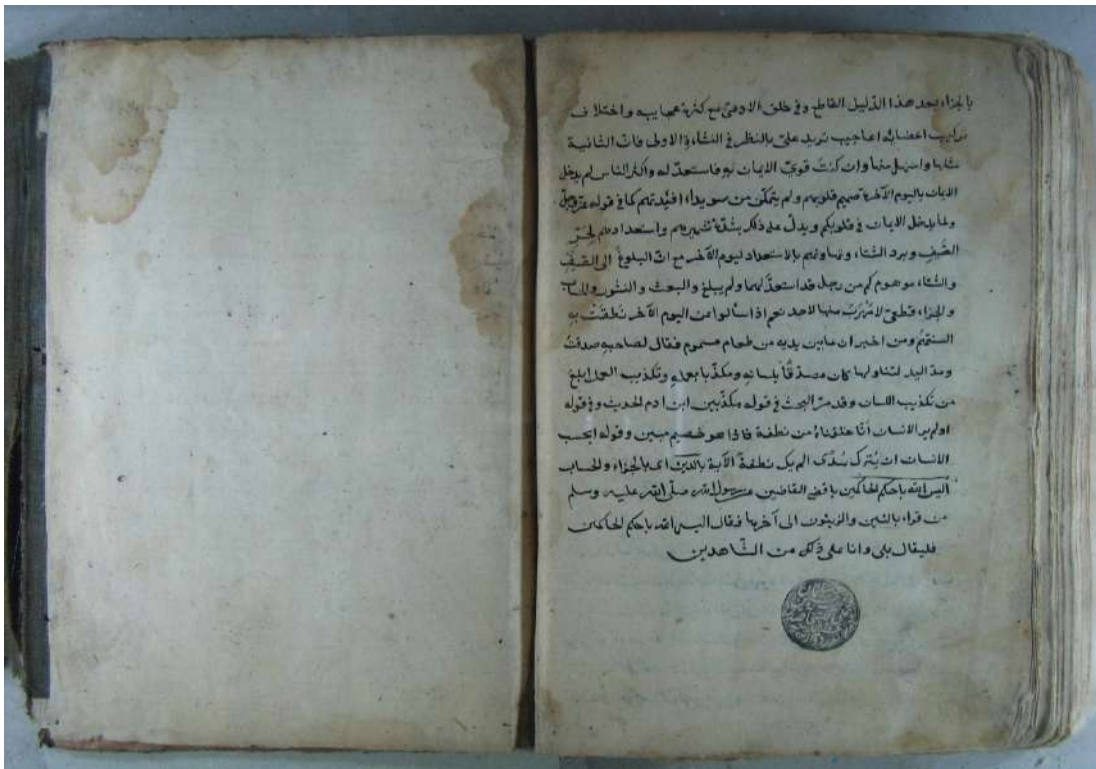 بالجزاء بعد هذا الدليل القاطع وفي خلق الادمى مع كثرة عجايبه واختلاف
تراكيب اعضائه اعاجيب تزيد على بالنظر في النشاءة الاولى فان الثانية
مثلها واسهل منها وان كنت قوي الايمان به فاستعد له واكثر الناس لم يدخل
الايمان باليوم الآخرة صميم قلوبهم ولم يتمكن من سويداء افئدتهم كما في قوله عز وجل
ولما يدخل الايمان في قلوبكم ويدل على ذلك بشدة تشميرهم واستعدادهم لحر
الصَّيف وبرد الشتاء وتهاونهم بالاستعداد ليوم الآخر مع ان البلوغ الى الصيف
والشتاء موهوم كم من رجل قد استعد لهما ولم يبلغ والبعث والنشور والحساب
والجزاء قطعي لا مَهْرَبَ منها لاحد نعم اذا سألوا من اليوم الآخر نَطَقَتْ بِهِ
السنتهُم ومن اخبر ان مابين يديه من طعام مسموم فقال لصاحبهِ صدقتَ
ومد اليد لتناولها كان مصدقًا بلسانه ومكذبا بعمله وتكذيب العمل ابلغ
من تكذيب اللسان وقد مر البحث في قوله مكذبين ابن ادم الحديث وفي قوله
اولم ير الانسان أنّا خلقناهُ من نطفة فاذا هو خصيم مبين وقوله ايحسب
الانسان ان يُترك سُدًى الم يك نطفةً الآية بالدين اى بالجزاء والحساب
أليس الله باحكم الحاكمين باقضى القاضين عن رسول الله صلى الله عليه وسلم
من قراء بالتين والزيتون الى آخرها فقال اليس الله باحكم الحاكمين
فليقال بلى وانا على ذلك من الشاهدين